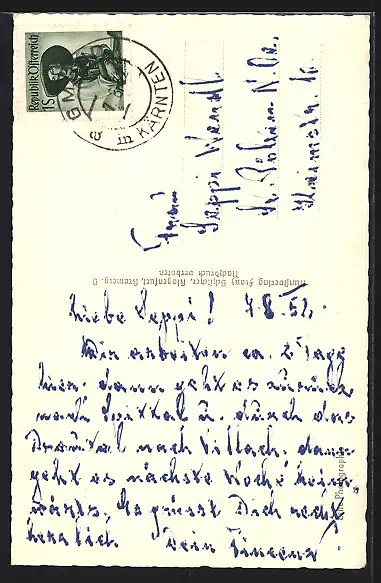 Republik Österreich
1 S
GM
in KÄRNTEN
Frau
Seppi
St. Pölten N.Oe.
Kunstverlag Franz Schilcher, Klagenfurt,
Nachdruck verboten
Liebe Seppi! 7.8.52.
Wir arbeiten ca. 2 Tage
hier. dann geht es zurück
nach Spittal u. durch das
Drautal nach Villach. dann
geht es nächste Woche heim-
wärts. Es grüsst Dich recht
herzlich Dein Vincenz